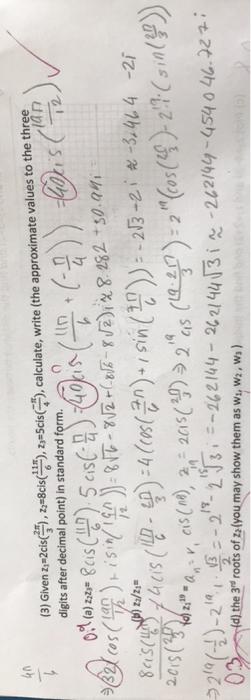 4π/1
(3) Given z₁=2cis(2π/3), z₂=8cis(11π/6), z₃=5cis(-π/4), calculate, write (the approximate values to the three
digits after decimal point) in standard form.
(a) z₂z₃= 8cis(11π/6)·5cis(-π/4) = 40cis(11π/6 + (-π/4)) = 40cis(19π/12) ✓
⇒ 32(cos(19π/12) + i sin(19π/12)) = 8√6 - 8√2 + (-8√6 - 8√2)i ≈ 8.282
(b) z₂/z₁=
8cis(11π/6) / 2cis(2π/3) = 4cis(11π/6 - 2π/3) = 4(cos(7π/6) + i sin(7π/6)) = -2√3 - 2i ≈ -3.464 - 2i
(c) z₁¹⁹ = aₙ = rⁿ cis(nθ) z₁ = 2cis(2π/3) ⇒ 2¹⁹ cis(19·2π/3) = 2¹⁹(cos(2π/3) - 2¹⁹·i(sin(2π/3))
⇒ 2¹⁹(-1/2) - 2¹⁹·i·√3/2 = -2¹⁸ - 2¹⁸√3i = -262144 - 262144√3i ≈ -262144 - 454046.727i
(d) the 3ʳᵈ roots of z₂(you may show them as w₁, w₂, w₃)